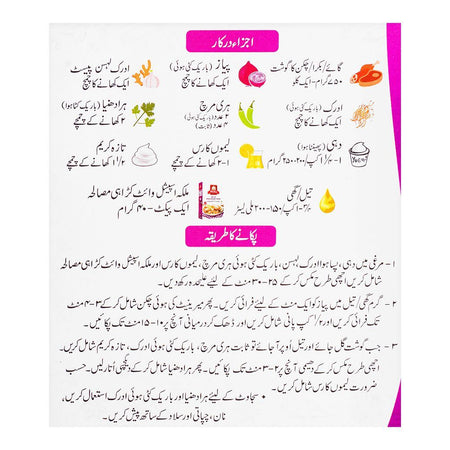 اجزاء درکار
گائے/بکرا/چکن کا گوشت
۷۵۰ گرام-ایک کلو
پیاز (باریک کٹی ہوئی)
ایک کھانے کا چمچ
ادرک لہسن پیسٹ
ایک کھانے کا چمچ
ادرک (باریک کٹی ہوئی)
ایک کھانے کا چمچ
ہری مرچ
۲ عدد (باریک کٹی ہوئی)
۴ عدد (ثابت)
ہرا دھنیا (باریک کٹا ہوا)
۲ کھانے کے چمچے
دہی (پھینٹا ہوا)
لیموں کا رس
۱-۲ کھانے کے چمچے
تازہ کریم
۱/۲ کھانے کے چمچے
تیل/گھی
۱۵۰-۲۰۰ ملی لیٹر
ملکہ اسپیشل وائٹ کڑاہی مصالحہ
ایک پیکٹ-۴۰ گرام
پکانے کا طریقہ
۱ - مرغی میں دہی، پسا ہوا ادرک لہسن، باریک کٹی ہوئی ہری مرچ، لیموں کا رس اور ملکہ اسپیشل وائٹ کڑاہی مصالحہ
شامل کریں اچھی طرح مکس کر کے ۲۵-۳۰ منٹ کے لیئے علیحدہ رکھ دیں۔
۲ - گرم گھی/تیل میں پیاز کو ایک منٹ کے لیئے فرائی کریں۔ پھر میرینیٹ کی ہوئی چکن شامل کر کے ۳-۴ منٹ
تک فرائی کریں اور ۱/۲ کپ پانی شامل کریں اور ڈھک کر درمیانی آنچ پر ۱۰-۱۵ منٹ تک پکائیں۔
۳ - جب گوشت گل جائے اور تیل اُوپر آجائے تو ثابت ہری مرچ، باریک کٹی ہوئی ادرک، تازہ کریم شامل کریں۔
اچھی طرح مکس کر کے دھیمی آنچ پر ۲-۳ منٹ تک پکائیں۔ پھر ہرا دھنیا شامل کر کے دیگچی اُتار لیں۔ حسب
ضرورت لیموں کا رس شامل کر لیں۔
٥ سجاوٹ کے لیئے ہرا دھنیا اور باریک کٹی ہوئی ادرک استعمال کریں،
نان، چپاتی اور سلاد کے ساتھ پیش کریں۔